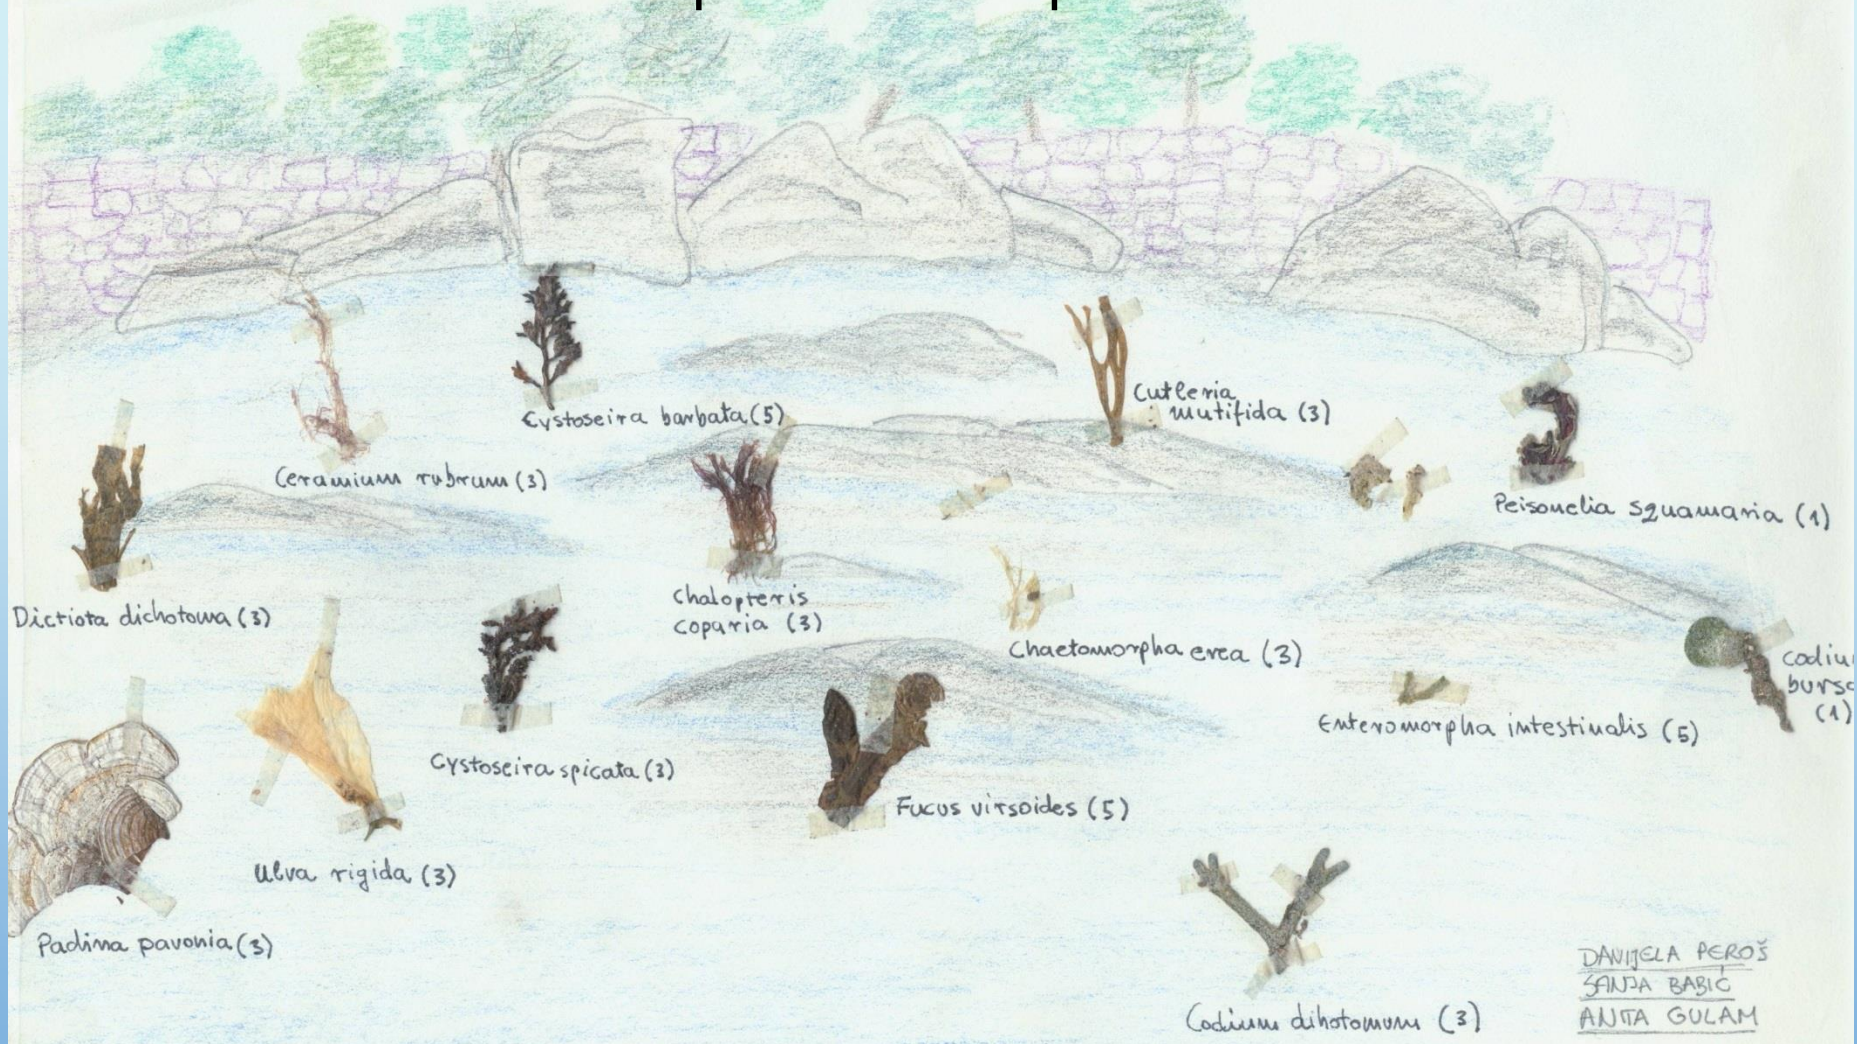 Cystoseira barbata (5)
Cutleria
mutifida (3)
Ceramium rubrum (3)
Peisonelia squamaria (1)
Dictiota dichotoma (3)
Chalopteris
coparia (3)
Chaetomorpha erea (3)
Codiu
burs
(1)
Enteromorpha intestinalis (5)
Cystoseira spicata (3)
Fucus virsoides (5)
Ulva rigida (3)
Padina pavonia (3)
Codium dihotomum (3)
DANIJELA PEROŠ
SANJA BABIĆ
ANITA GULAM